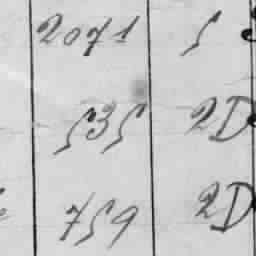 2071 5
535 2D
759 2D